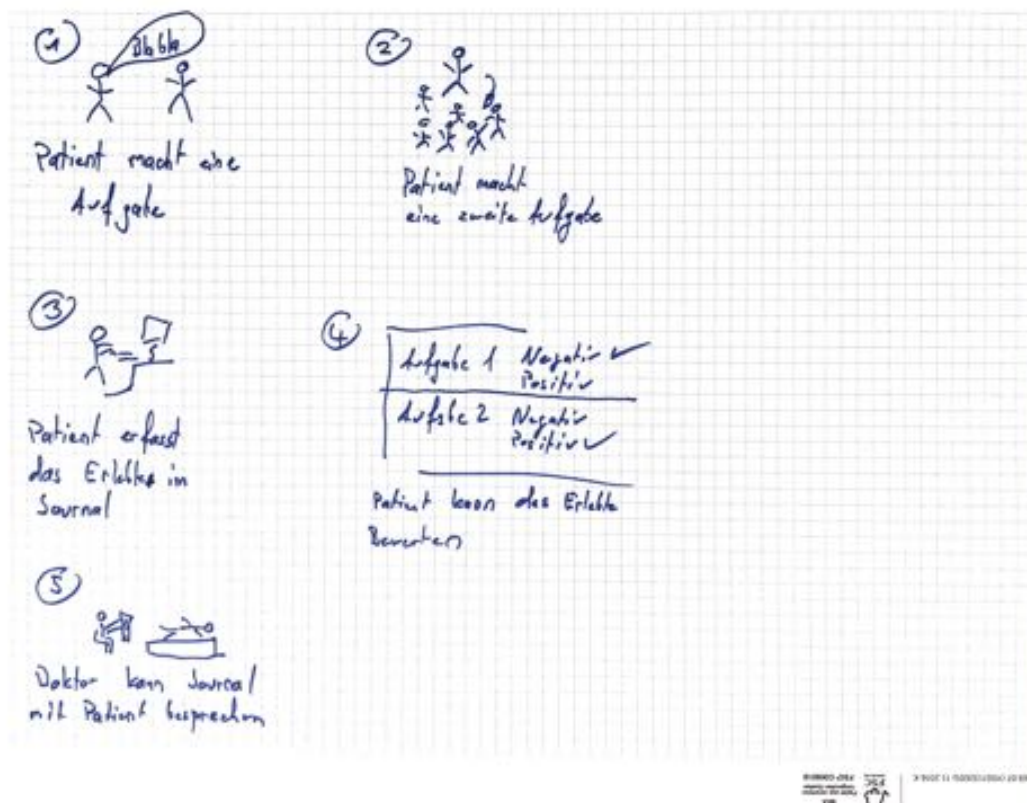 1
Blabla
Patient macht eine
Aufgabe
2
Patient macht
eine zweite Aufgabe
3
Patient erfasst
das Erlebte in
Journal
4
Aufgabe 1 Negativ ✓
Positiv
Aufgabe 2 Negativ
Positiv ✓
Patient kann das Erlebte
Bewerten
5
Doktor kann Journal
mit Patient besprechen
FSC